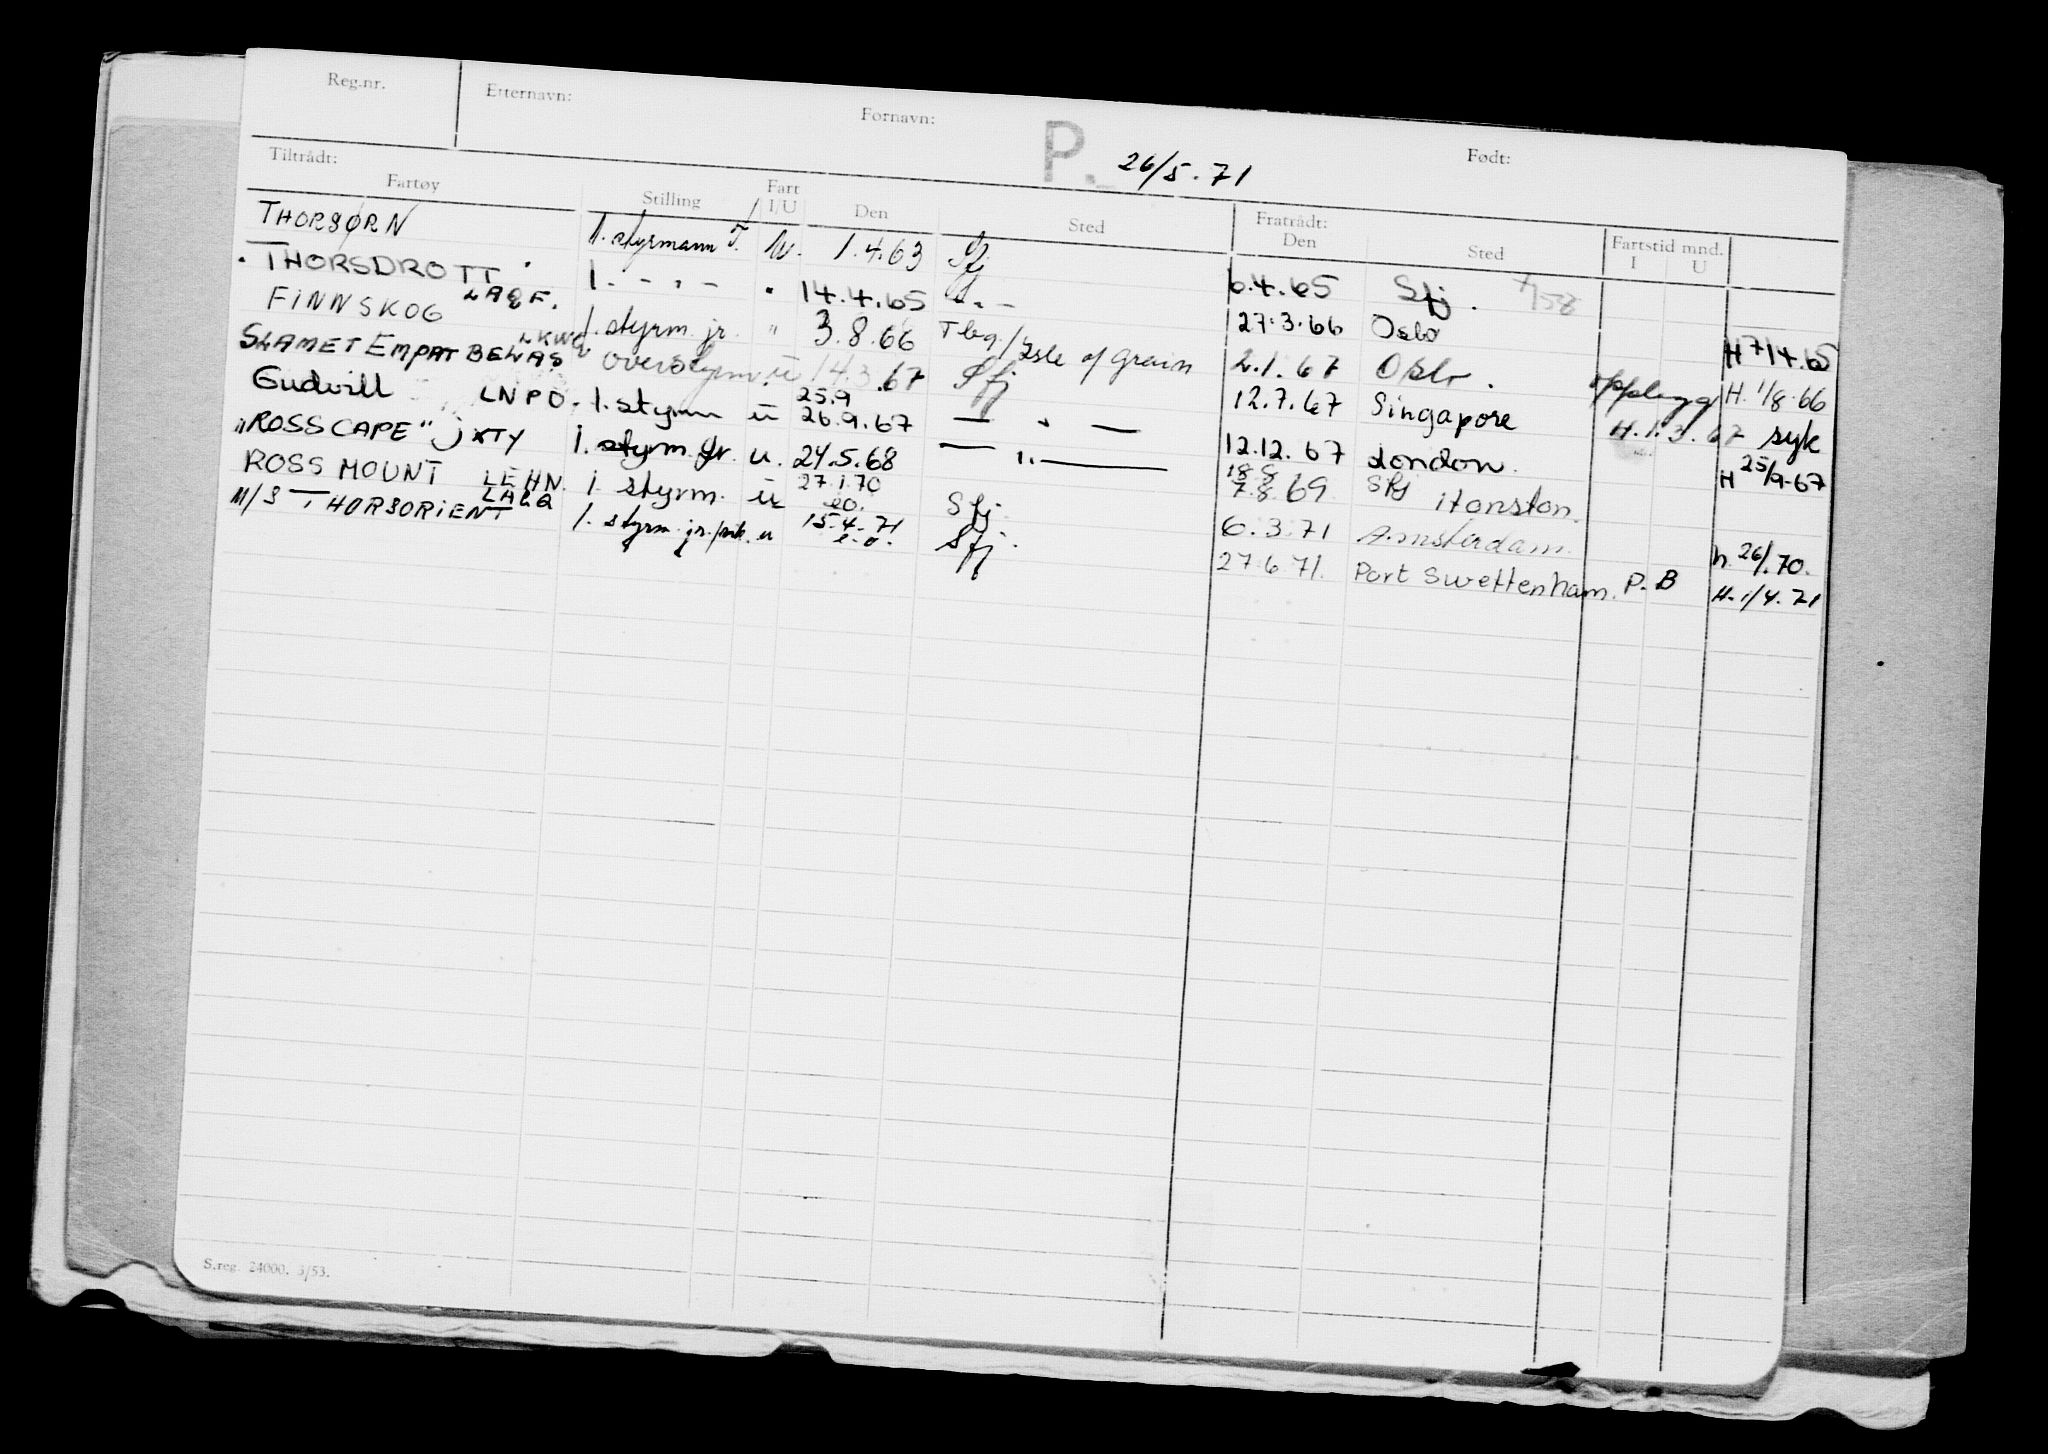 Reg.nr. Etternavn: Fornavn: P. 26/5.71 Født:
Tiltrådt: Fratrådt: Fartstid mnd.
Fartøy Stilling Fart I/U Den Sted Den Sted I U
THORSØRN 1. styrmann T. U. 1.4.63 Sfj 6.4.65 Sfj.
THORSDROTT LAQF. 1. - " - " 14.4.65 - " - 27.3.66 Oslo H 7/4.65
FINNSKOG 1. styrm. jr. " 3.8.66 Tbg/Isle of Grain 2.1.67 Oslo. opplegg H. 1/8.66
SLAMET EMPAT BELAS LKWQ overstyrm. u 14.3.67 Sfj 12.7.67 Singapore H.1.3.67 syk
Gudvill LNPO. 1. styrm u 25.9 26.9.67 — " — 12.12.67 London. H 25/9-67
"ROSSCAPE" JXTY 1. styrm. jr. u. 24.5.68 — " — 18.8 7.8.69 Sfj Honston.
ROSS MOUNT LEHN. 1 styrm. u 27.1.70 eo. Sfj. 6.3.71 Amsterdam. h. 26/1.70.
M/S THORSORIENT LAEQ 1. styrm. jr./ u 15.4.71 e.o. Sfj. 27.6.71. Port Swettenham. P.B H. 1/4.71
S.reg. 24000. 3/53.